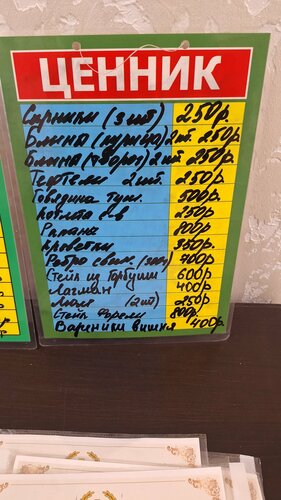 ЦЕННИК
Сырники (3 шт) 250р.
Блины (курица) 2 шт. 250р.
Блины (творог) 2 шт. 250р.
Тефтели 2 шт. 250р.
Говядина туш. 500р.
Котлета кв 250р.
Рапана 800р.
Креветки 350р.
Ребро свин. 400р.
Стейк из Горбуши 600р
Лагман 400р.
Люля (2 шт) 250р
Стейк Форели 800р.
Вареники вишня 400р.